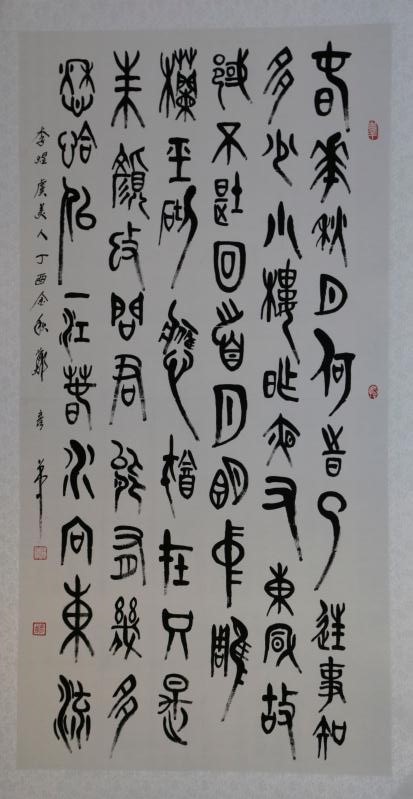 春華秋月何時了往事知
多少小樓昨夜又東風故
國不堪回首月明中雕
欄玉砌應猶在只是
朱顏改問君能有幾多
愁恰似一江春水向東流
李煜虞美人丁酉金秋鄭彦